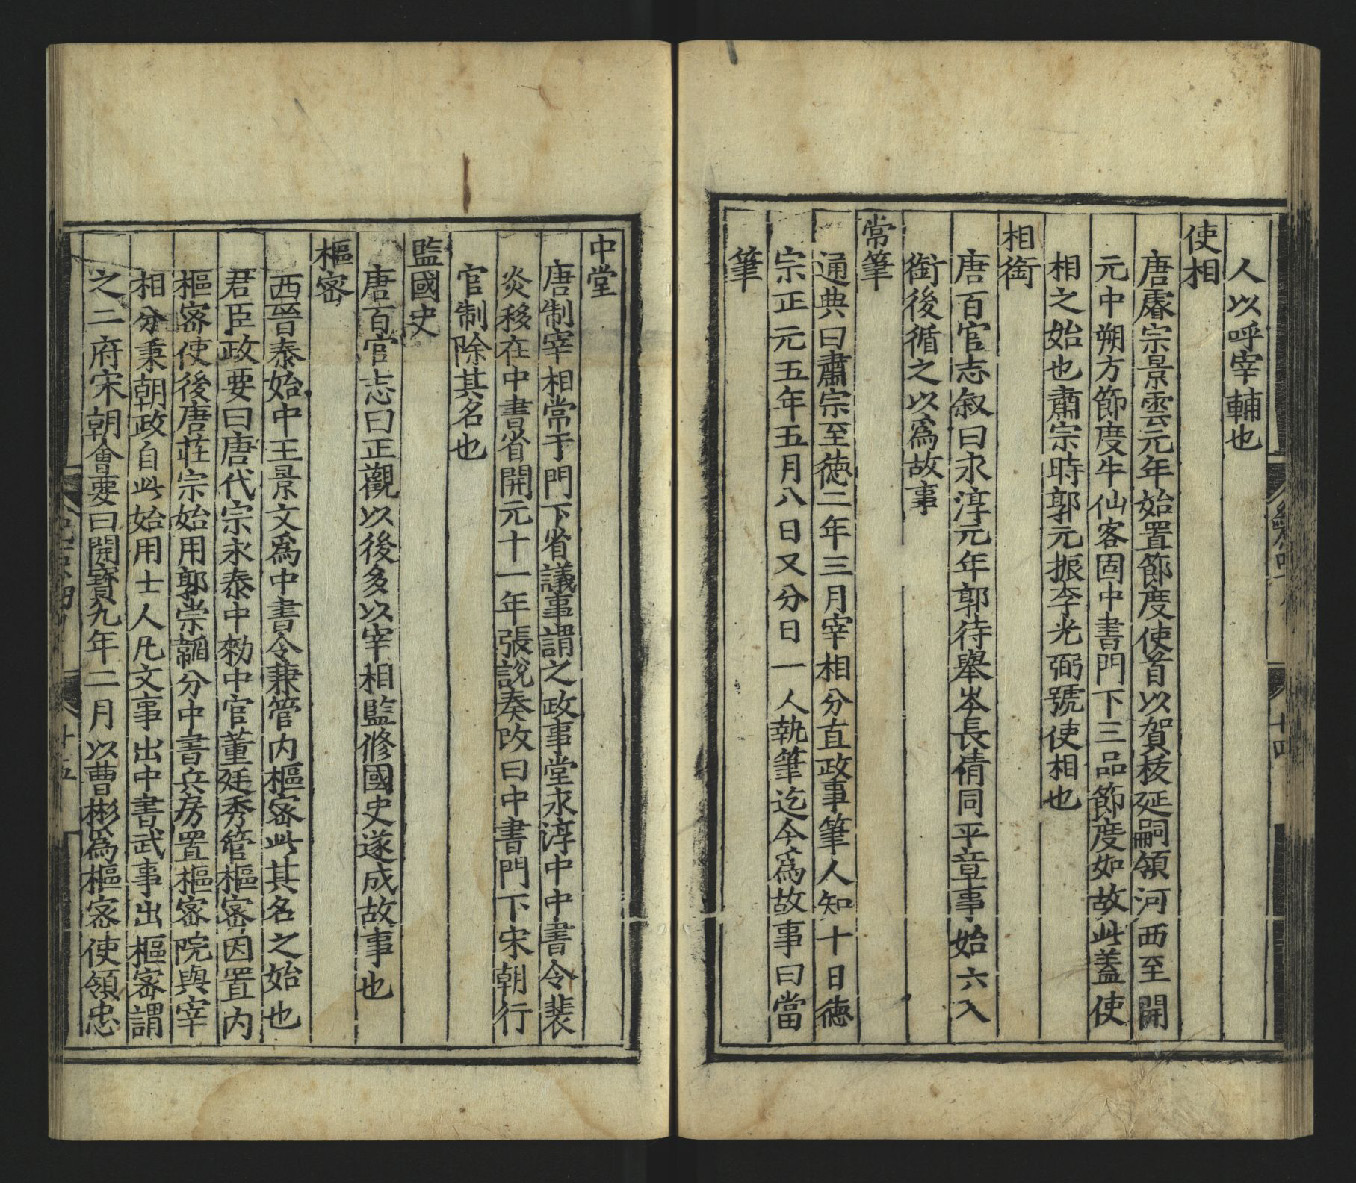 人以呼宰輔也
使相
唐睿宗景雲元年始置節度使首以賀拔延嗣領河西至開
元中朔方節度牛仙客固中書門下三品節度如故此蓋使
相之始也肅宗時郭元振李光弼號使相也
相銜
唐百官志叙曰永淳元年郭待舉岑長倩同平章事始六入
銜後循之以爲故事
常筆
通典曰肅宗至德二年三月宰相分直政事筆人知十日德
宗正元五年五月八日又分日一人執筆迄今爲故事曰當
筆
十四
中堂
唐制宰相常于門下省議事謂之政事堂永淳中中書令裴
炎移在中書省開元十一年張說奏改曰中書門下宋朝行
官制除其名也
監國史
唐百官志曰正觀以後多以宰相監脩國史遂成故事也
樞密
西晉泰始中王景文爲中書令兼管内樞密此其名之始也
君臣政要曰唐代宗永泰中勑中官董廷秀管樞密因置内
樞密使後唐莊宗始用郭崇韜分中書兵房置樞密院與宰
相分秉朝政自此始用士人凡文事出中書武事出樞密謂
之二府宋朝會要曰開寶九年二月以曹彬爲樞密使領忠
十五